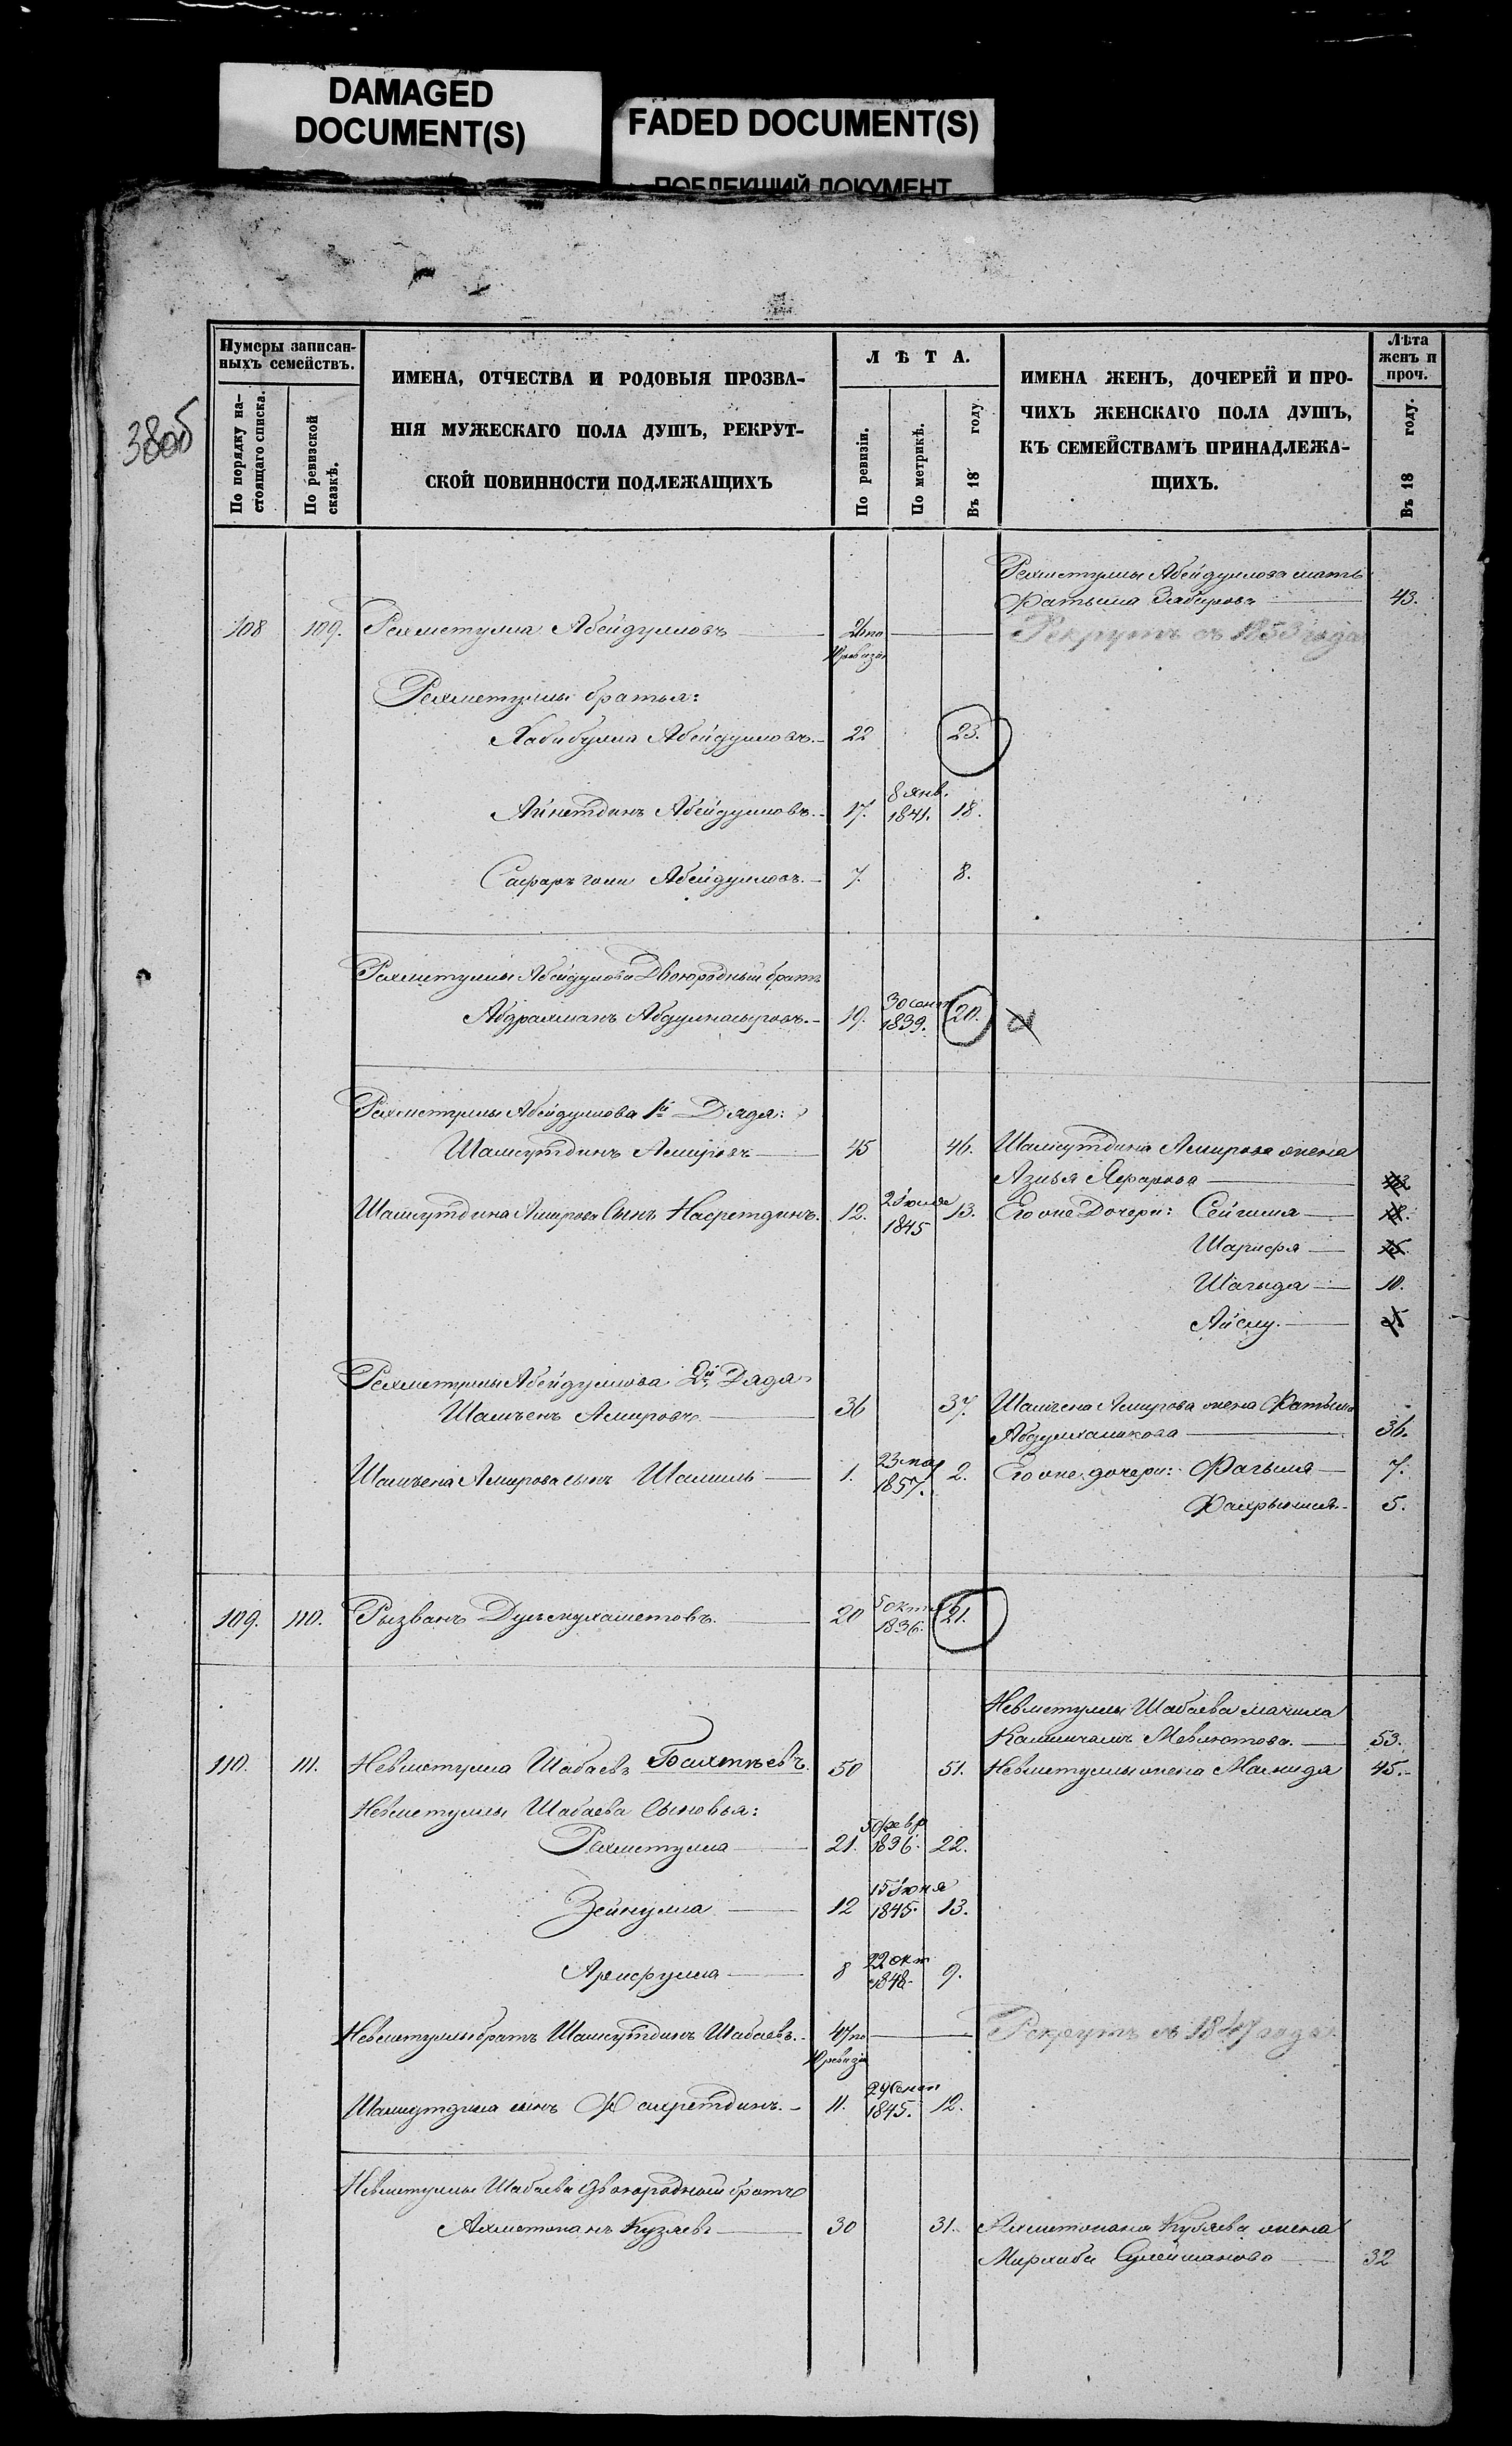 DAMAGED
DOCUMENT(S)
FADED DOCUMENT(S)
ПОБЛЕКШИЙ ДОКУМЕНТ
380б
Нумеры записан-
ныхъ семействъ.
По порядку на-
стоящаго списка.
По ревизской
сказкѣ.
ИМЕНА, ОТЧЕСТВА И РОДОВЫЯ ПРОЗВА-
НІЯ МУЖЕСКАГО ПОЛА ДУШЪ, РЕКРУТ-
СКОЙ ПОВИННОСТИ ПОДЛЕЖАЩИХЪ
ЛѢТА.
По ревизіи.
По метрикѣ.
Въ 18 году
ИМЕНА ЖЕНЪ, ДОЧЕРЕЙ И ПРО-
ЧИХЪ ЖЕНСКАГО ПОЛА ДУШЪ,
КЪ СЕМЕЙСТВАМЪ ПРИНАДЛЕЖА-
ЩИХЪ.
Лѣта
женъ и
проч.
Въ 18 году.
Рехметуллы Абейдуллова мать
Фатьима Забирова 43.
108 109. Рехметулла Абейдулловъ по ревизіи Рекрутъ съ 1853 года
Рехметуллы братья:
Хабибулла Абейдулловъ 22 23.
Айнетдинъ Абейдулловъ 17. 8 янв. 1841. 18.
Сафаръ гали Абейдулловъ 7. 8.
Рехметуллы Абейдуллова Двоюродный братъ
Абдрахманъ Абдулнасыровъ 19. 30 сент 1839. 20.
Рехметуллы Абейдуллова 1й Дядя:
Шамсутдинъ Амировъ 45 46. Шамсутдина Амирова жена
Азибя Яфарова
Шамсутдина Амирова Сынъ Насретдинъ. 12. 2 іюля 1845 13. Его же Дочери: Сейгима
Шарифя
Шагида 10.
Айслу
Рехметуллы Абейдуллова 2й Дядя
Шамгенъ Амировъ 36 37. Шамгена Амирова жена Фатьима
Абдулхаликова 36.
Шамгена Амирова сынъ Шамиль 1. 23 мая 1857. 2. Его же дочери: Фагьимя 7.
Фахрыниса 5.
109. 110. Рызванъ Дусьмухаметовъ 20 5 окт 1836. 21.
Невметуллы Шабаева мачиха
Камыгалъ Мевлютова 53.
110. 111. Невметулла Шабаевъ Бахтѣевъ. 50 51. Невметуллы жена Магнида 45.
Невметуллы Шабаева Сыновья:
Рехметулла 21. 5 февр 1836. 22.
Зейнулла 12 15 іюня 1845. 13.
Арифулла 8 22 окт 1848. 9.
Невметуллы братъ Шамсутдинъ Шабаевъ. 47 по ревизіи Рекрутъ съ 1847 года
Шамсутдина сынъ Фахретдинъ. 11. 29 сент 1845. 12.
Невметуллы Шабаева двоюродный братъ
Ахметжанъ Кузяевъ 30 31. Ахметжана Кузяева жена
Мирхиба Сулейманова 32